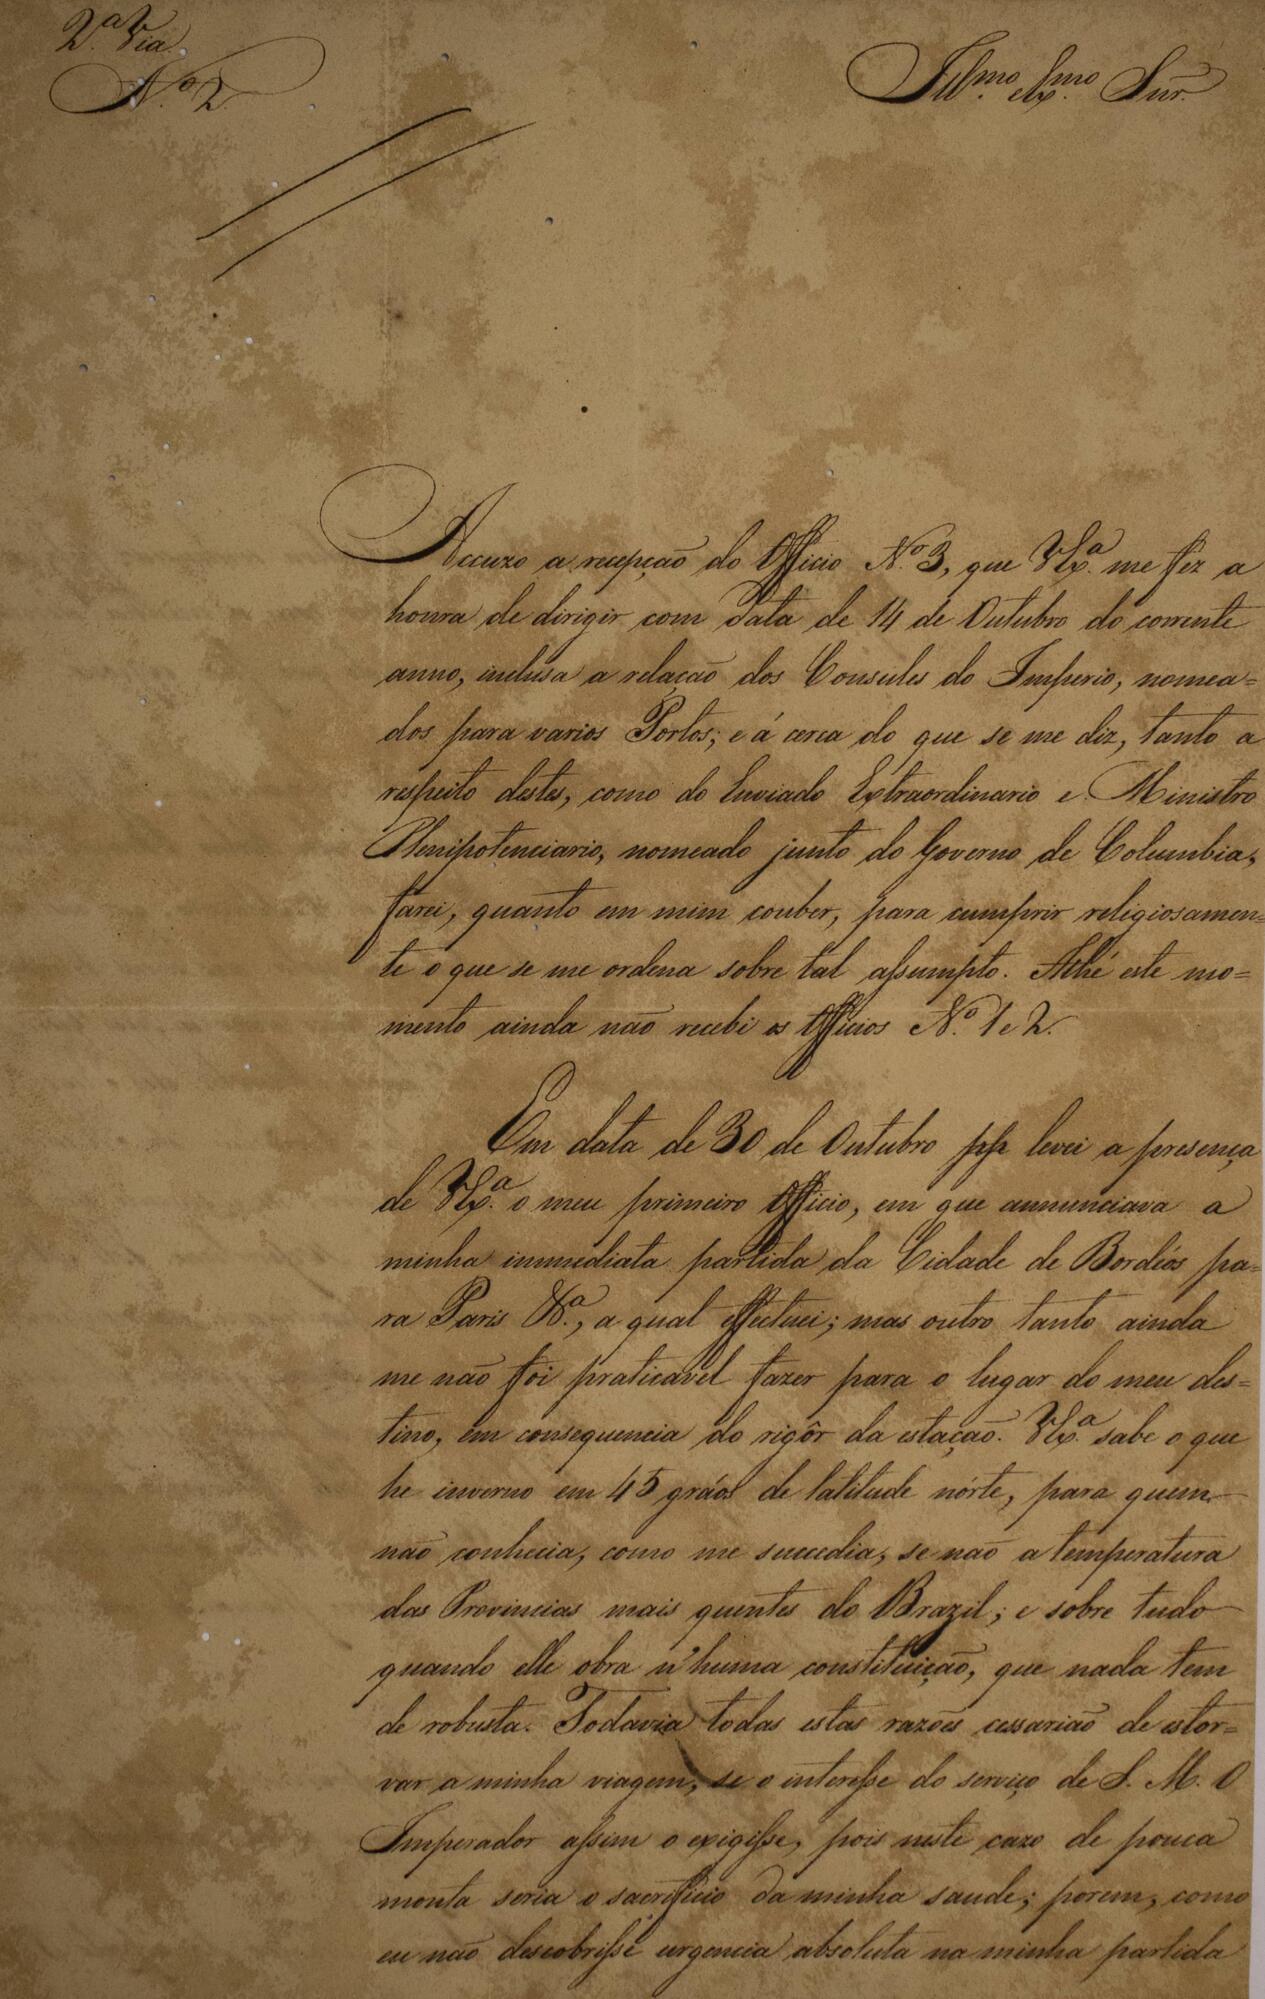 2.ª Via
N.º 2
Ill.mo Ex.mo Snr.
Accuzo a recepção do Officio N.º 3, que V.Ex.ª me fez a
honra de dirigir com data de 14 de Outubro do corrente
anno, inclusa a relação dos Consules do Imperio, nomea=
dos para varios Portos; e á cerca do que se me diz, tanto a
respeito destes, como do Enviado Extraordinario e Ministro
Plenipotenciario, nomeado junto do Governo de Columbia,
farei, quanto em mim couber, para cumprir religiosamen=
te o que se me ordena sobre tal assumpto. Athé este mo=
mento ainda não recebi os Officios N.º 1 e 2.
Em data de 30 de Outubro pp levei a presença
de V.Ex.ª o meu primeiro Officio, em que annunciava a
minha immediata partida da Cidade de Bordéos pa=
ra Paris &.ª, a qual effectuei; mas outro tanto ainda
me não foi praticavel fazer para o lugar do meu des=
tino, em consequencia do rigôr da estação. V.Ex.ª sabe o que
he inverno em 45 gráos de latitude nórte, para quem
não conhecia, como me succedia, se não a temperatura
das Provincias mais quentes do Brazil; e sobre tudo
quando elle obra n'huma constituição, que nada tem
de robusta. Todavia todas estas razões cessarião de estor=
var a minha viagem, se o interesse do serviço de S. M. O
Imperador assim o exigisse, pois neste cazo de pouca
monta seria o sacrificio da minha saude; porem, como
eu não descobrisse urgencia absoluta na minha partida